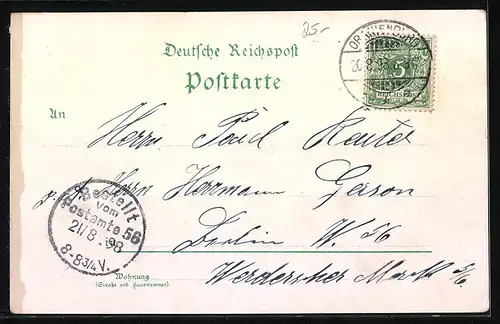 25-
Deutsche Reichspost
Postkarte
An
Herrn Paul Reuter
p. A. Herrn Herrmann Gerson
Berlin W. 56
Werderscher Markt 5/6
20.8.98
5
REICHSPOST
Bestellt
vom
Postamte 56
21/8 98
8-8 3/4 V.
Wohnung
(Straße und Hausnummer)